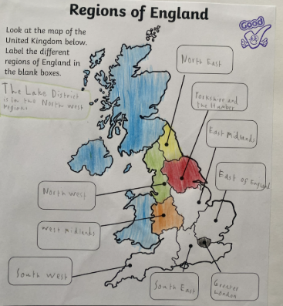 Regions of England
Good
Look at the map of the
United Kingdom below.
Label the different
regions of England in
the blank boxes.
The Lake District
is in the North West
region
North East
Yorkshire and
the Humber
East Midlands
East of England
North West
West Midlands
South West
South East
Greater
London